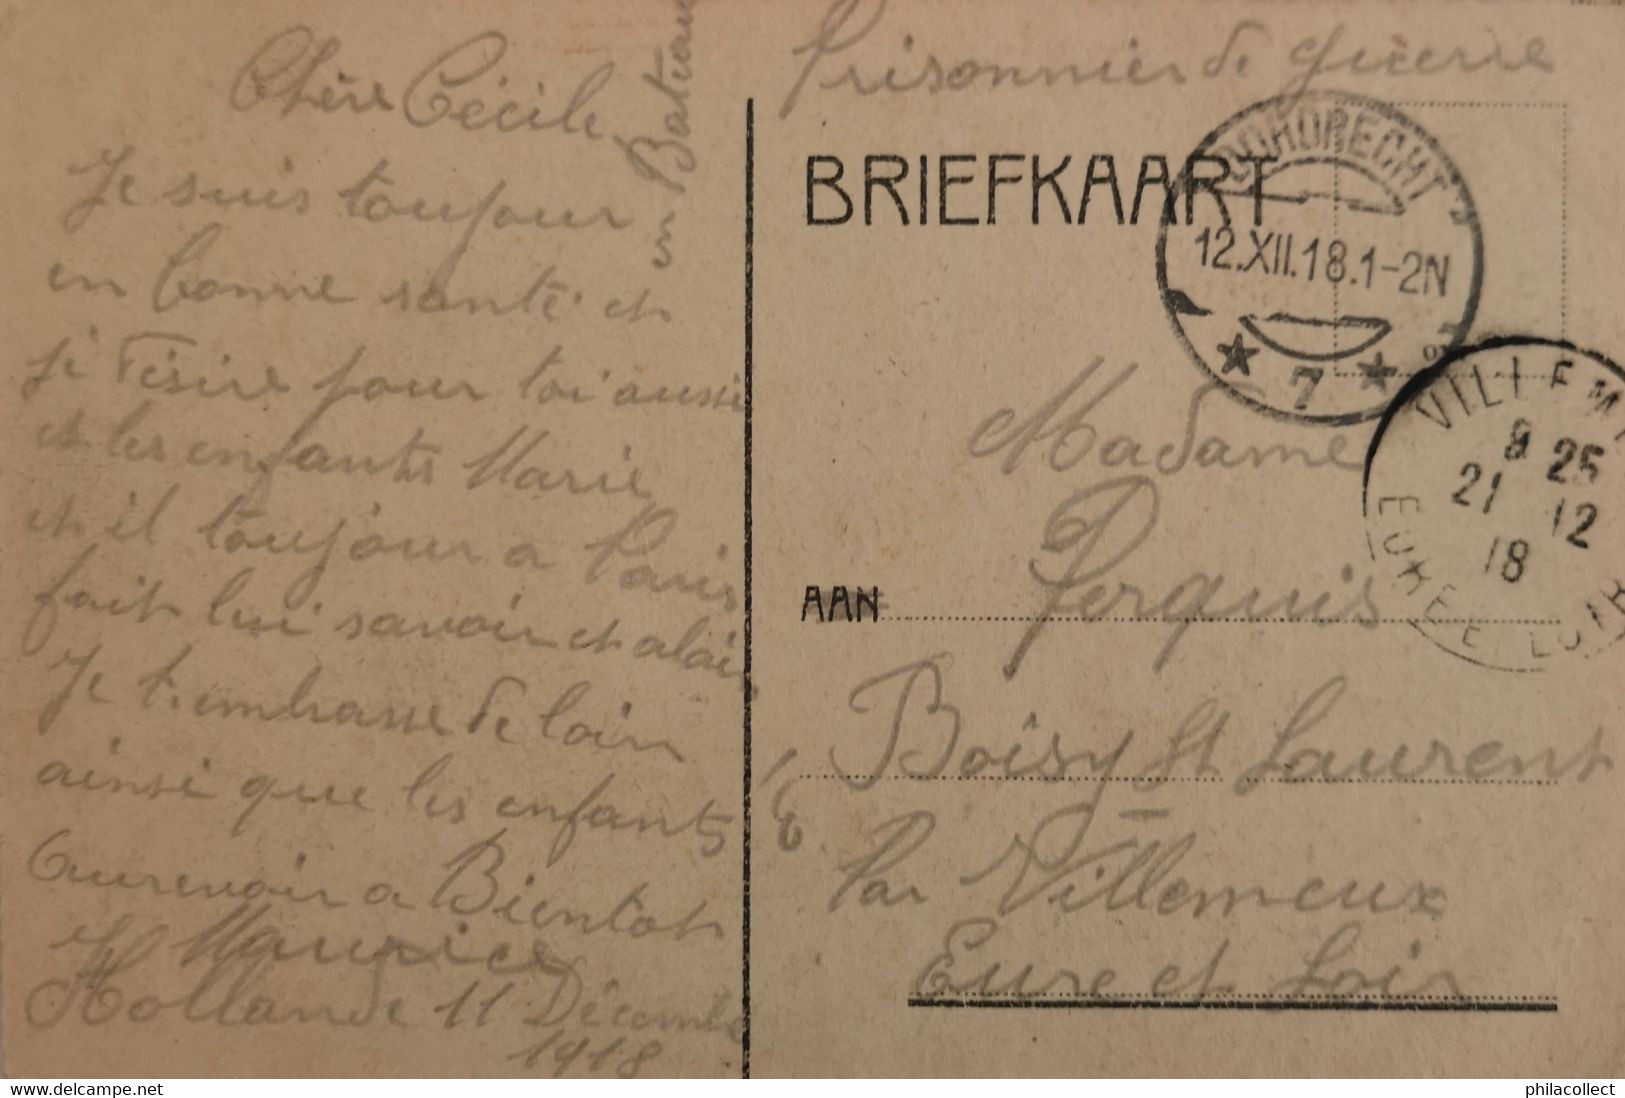 Chère Cécile
Je suis toujour
en bonne santé et
je désire pour toi aussi
et les enfants Marie
et il toujour a Paris
fait lui savoir et alais
Je t'embrasse de loin
ainsi que les enfants
Aurevoir a Bientot
Maurice
Hollande 11 Décembre
1918
en Bateau
Prisonnier de guerre
BRIEFKAART
DORDRECHT
12.XII.18.1-2N
* 7 *
VILLEM
8 25
21 12
18
EURE E LOIR
Madame
AAN Perquis
Boisy St Laurent
Par Villemeux
Eure et Loir
delcampe.net
philacollect